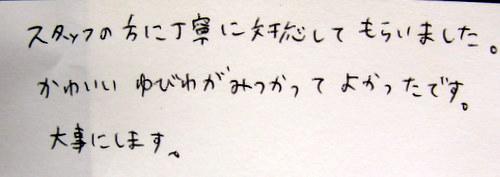 スタッフの方に丁寧に対応してもらいました。
かわいいゆびわがみつかってよかったです。
大事にします。